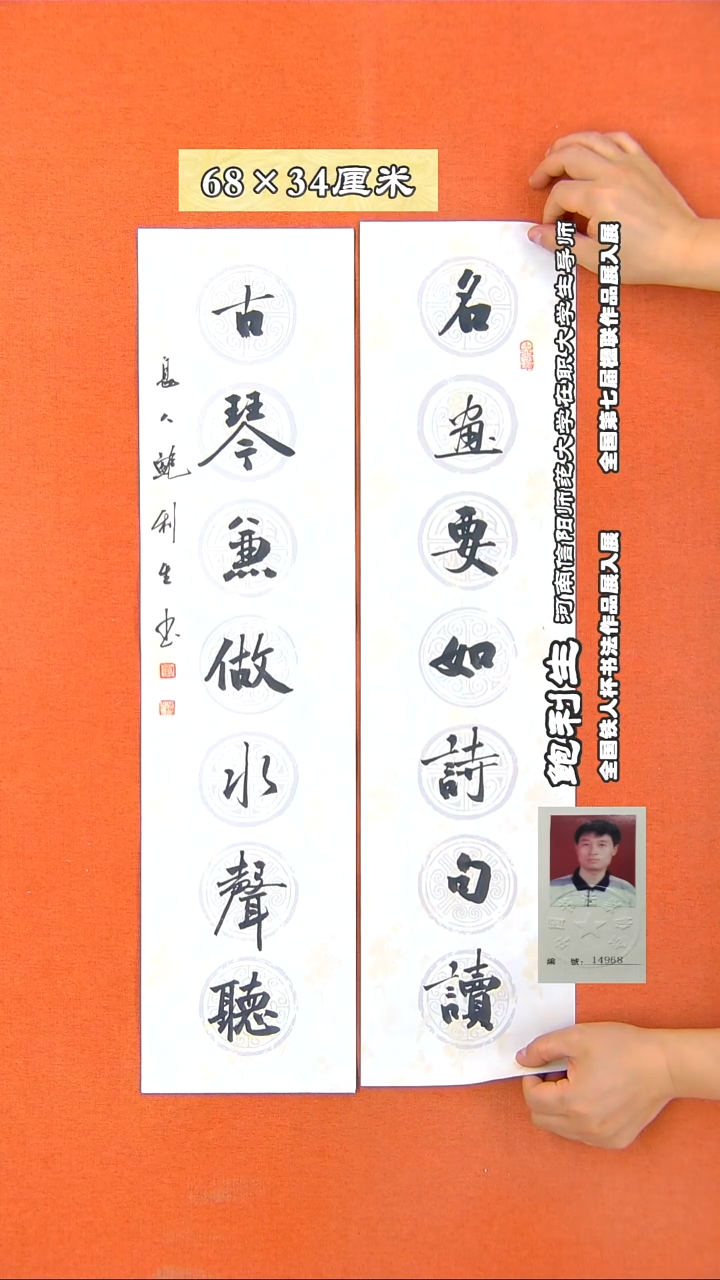 68×34厘米
名畫要如詩句讀
古琴兼做水聲聽
息人鲍利生书
鲍利生
河南信阳师范大学在职大学生导师
全国铁人杯书法作品展入展
全国第七届楹联作品展入展
編 號：14968